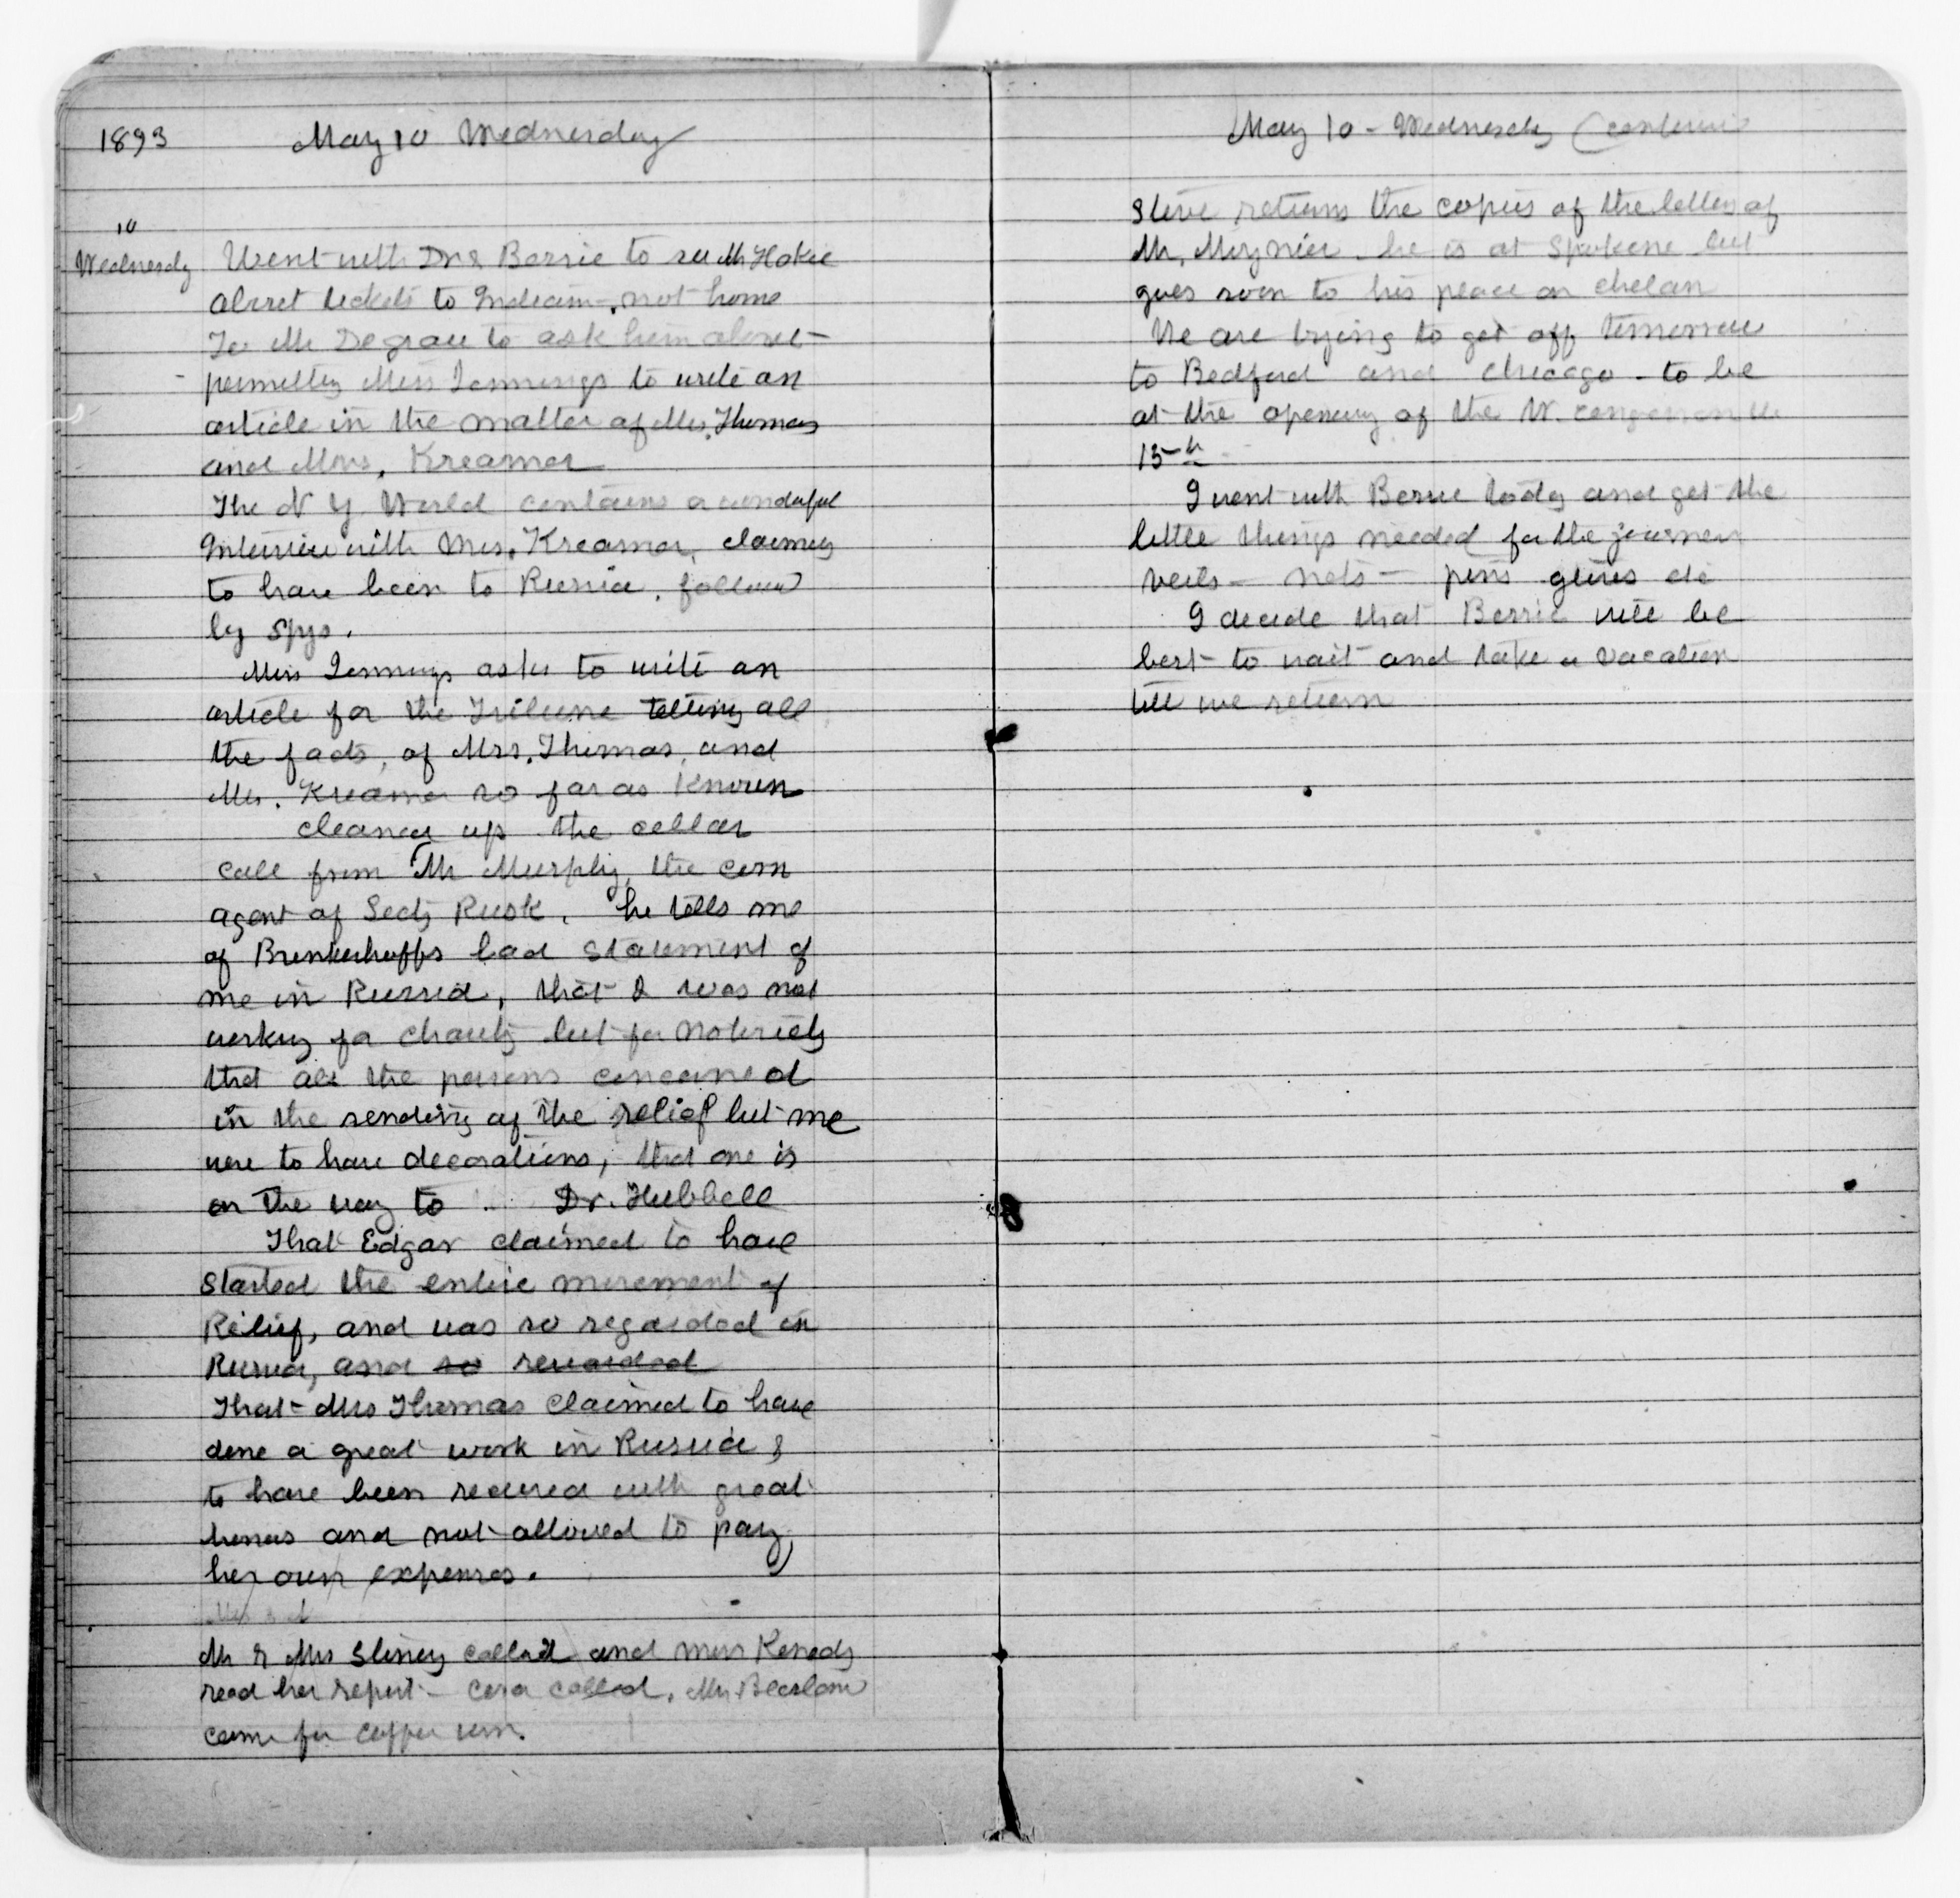 1893
May 10 Wednesday
10
Wednesdy
Went with Dr & Bessie to see Mr Hokee
about tickets to Indiana, not home
To Mr De grau to ask him about
permitting Miss Jennings to write an
article in the matter of Mrs. Thomas
and Mrs. Kreamer
The N Y World contains a wonderful
Interview with Mrs. Kreamer, claiming
to have been to Russia, follow
by spys.
Miss Jennings asks to write an
article for the Tribune telling all
the facts, of Mrs. Thomas, and
Mrs. Kreamer so far as known
cleaned up the cellar
call from Mr Murphy, the corn
agent of Secty Rusk. he tells me
of Brinkerhoffs bad statement of
me in Russia, that I was not
working for charity but for notoriety
that all the persons concerned
in the sending of the relief but me
were to have decorations, that one is
on the way to Dr. Hubbell
That Edgar claimed to have
started the entire movement of
Relief, and was so regarded in
Russia, and so rewarded
That Mrs Thomas claimed to have
done a great work in Russia &
to have been received with great
honors and not allowed to pay
her own expenses.
Mr & Mrs Sliney called and Miss Kenedy
read her report - Cora called. Mr
came for coffee urn.
May 10 - Wednesday (continu
Steve returns the copies of the letters of
Mr. Moynier. he is at Spokene but
goes soon to his place on chelan
We are trying to get off tomorrow
to Bedford and Chicago - to be
at the opening of the W. congress on the
15th
I went with Bessie today and get the
little things needed for the journey
veils - nets - pins gloves etc
I decide that Bessie will be
best to wait and take a vacation
till we return